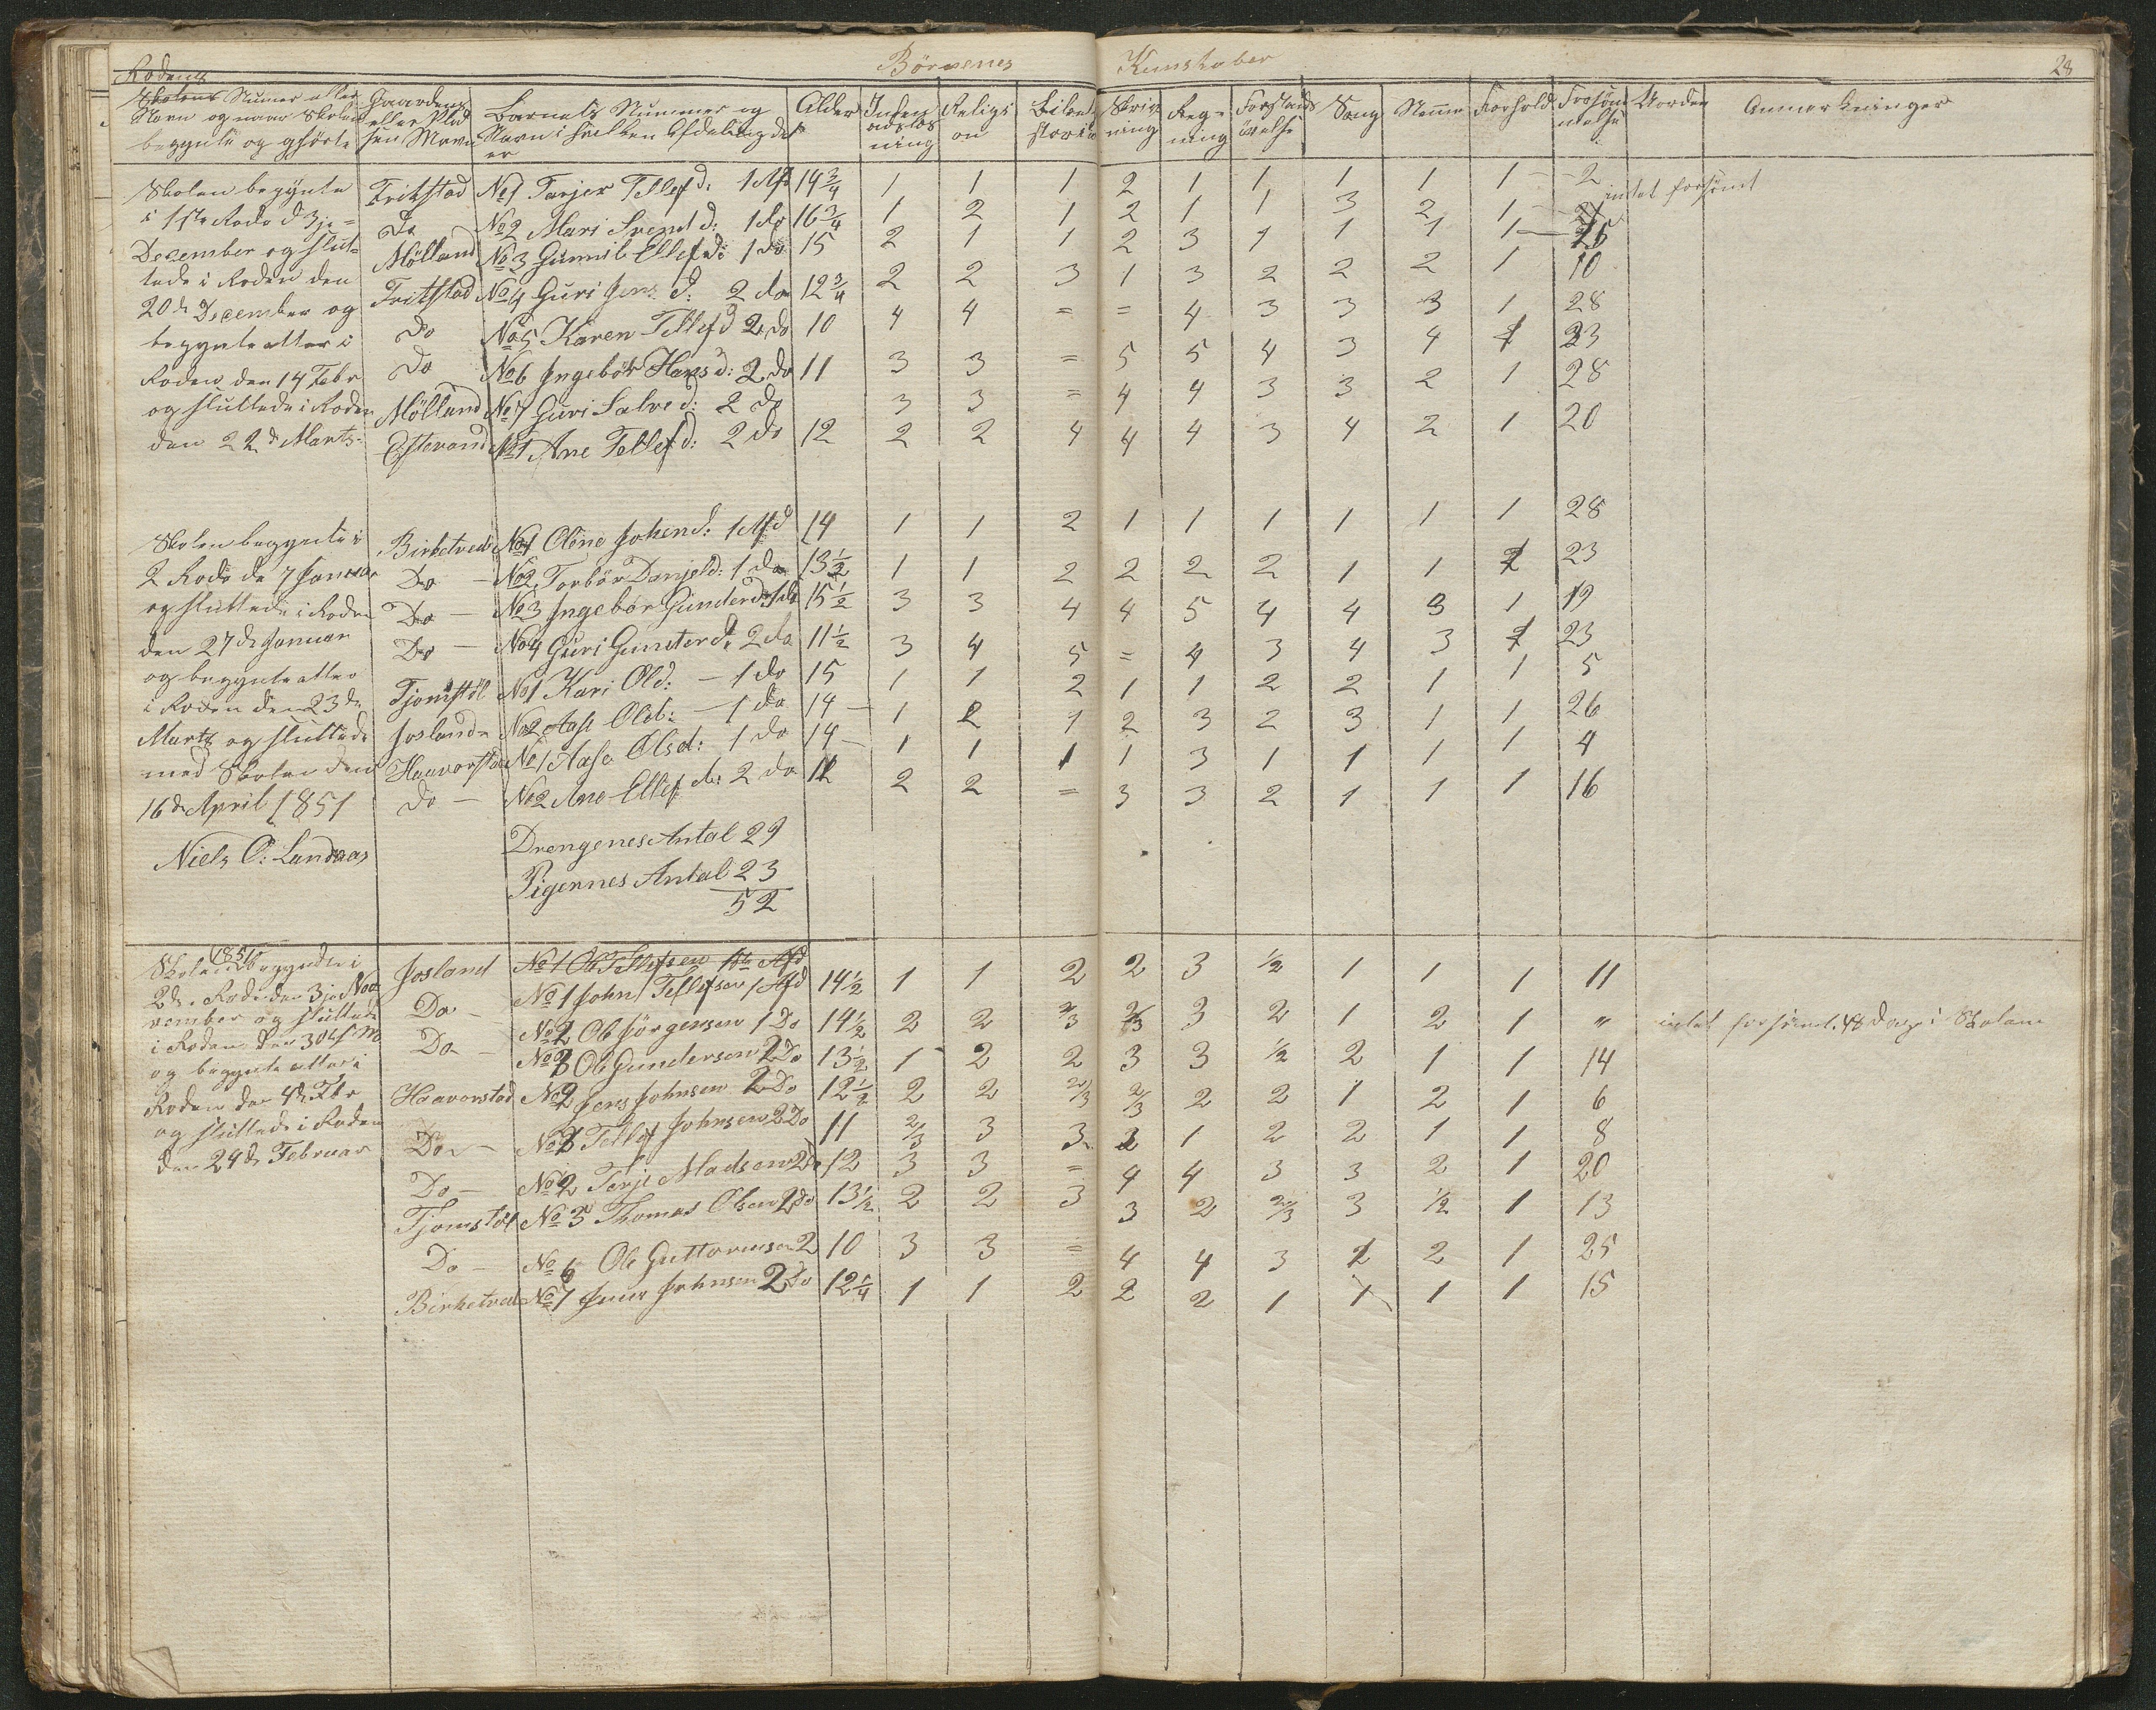 Börnenes Kunskaber 28
Rodens
Skolens Numer eller Navn og naar Skolen begynte og ophörte
Gaardens eller Pladsen Navn
Barnets Nummer og Navn i hvilken Afdeling det er
Alder
Religion
Skrivning
Regning
Forstandsövelse
Sang
Nemme
Forhold
Forsömmelse
Anmærkninger
Skolen begynte
i 1ste Rode d 3je
December og slut-
tede i Roden den
20de December og
begynte atter i
Roden den 14 Febr
og sluttede i Roden
den 22de Marts.
Fritstad No 1 Tarjer Tellefd: 1 Afd 14 3/4 1 1 1 2 1 1 1 1 1 2
Do No 2 Mari Svend d: 1 do 16 3/4 1 2 1 2 1 1 3 2 1 intet forsömt
Mölland No 3 Gunnil Ellefd: 1 do 15 2 1 1 2 3 1 1 1 1
Fritstad No 4 Guri Jens d: 2 do 12 3/4 2 2 3 1 3 2 2 2 1 10
Do No 5 Karen Tellefd 2 do 10 4 4 = = 4 3 3 3 1 28
Do No 6 Ingebör Hansd: 2 do 11 3 3 = 5 5 4 3 4 1 23
Mölland No 7 Guri Salved: 2 do 3 3 = 4 4 3 3 2 1 28
No 1 Ane Tellefd: 2 do 12 2 2 4 4 4 3 4 2 1 20
Skolen begynte i
2 Rode de 7 Januar
og sluttede i Roden
den 27de Januar
og begynte atter
i Roden den 23de
Marts og sluttede
med Skolen den
16de April 1851
Niels O: Landaas
Birketvedt No 1 Oline Johend: 1 Afd 14 1 1 2 1 1 1 1 1 1 28
Do No 2 Torbör Danjeld: 1 do 13 1/2 1 1 2 2 2 2 1 1 2 23
Do No 3 Ingebör Gunderd: 1 do 15 1/2 3 3 4 4 5 4 4 3 1 19
Do No 4 Guri Gunderd: 2 do 11 1/2 3 4 5 = 4 3 4 3 1 23
Tjomstöl No 1 Kari Old: 1 do 15 1 1 2 1 1 2 2 1 1 5
Josland No 2 Aase Old: 1 do 14 1 2 1 2 3 2 3 1 1 26
Haavorstad No 1 Aase Olsd: 1 do 14 1 1 1 1 3 1 1 1 1 4
Do No 2 Ane Ellef d: 2 do 12 2 2 = 3 3 2 1 1 1 16
Drengenes Antal 29
Pigernes Antal 23
52
1851
Skolen begyndte i
2de Rode den 3je No-
vember og sluttede
i Roden den 30te
og begynte atter i
Roden den 4de Febr
og sluttede i Roden
den 24de Februar
Josland No 1 Ole Tellefsen 1ste Afd
No 1 John Tellefsen 1 Afd 14 1/2 1 1 2 2 3 1/2 1 1 1 11
Do No 2 Ole Jörgensen 1 Do 14 1/2 2 2 2/3 2/3 3 2 1 2 1 " intet forsömt, 48 Dage i Skolen
Do No 3 Ole Gundersen 2 Do 13 1/2 1 2 2 3 3 1/2 2 1 1 14
Haavorstad No 2 Jens Johnsen 2 Do 12 1/2 2 2 2/3 2/3 2 2 1 2 1 6
Do No 3 Tellef Johnsen 2 Do 11 2/3 3 3 2 1 2 2 1 1 8
Do No 2 Terje Madsen 2 Do 12 3 3 = 4 4 3 3 2 1 20
Tjomstöl No 3 Thomas Olsen 2 Do 13 1/2 2 2 3 3 2 2/3 3 1/2 1 13
Do No 6 Ole Guttormsen 2 10 3 3 = 4 4 3 2 2 1 25
Birketvedt No 1 Jens Johnsen 2 Do 12 1/4 1 1 2 2 2 1 1 1 1 15